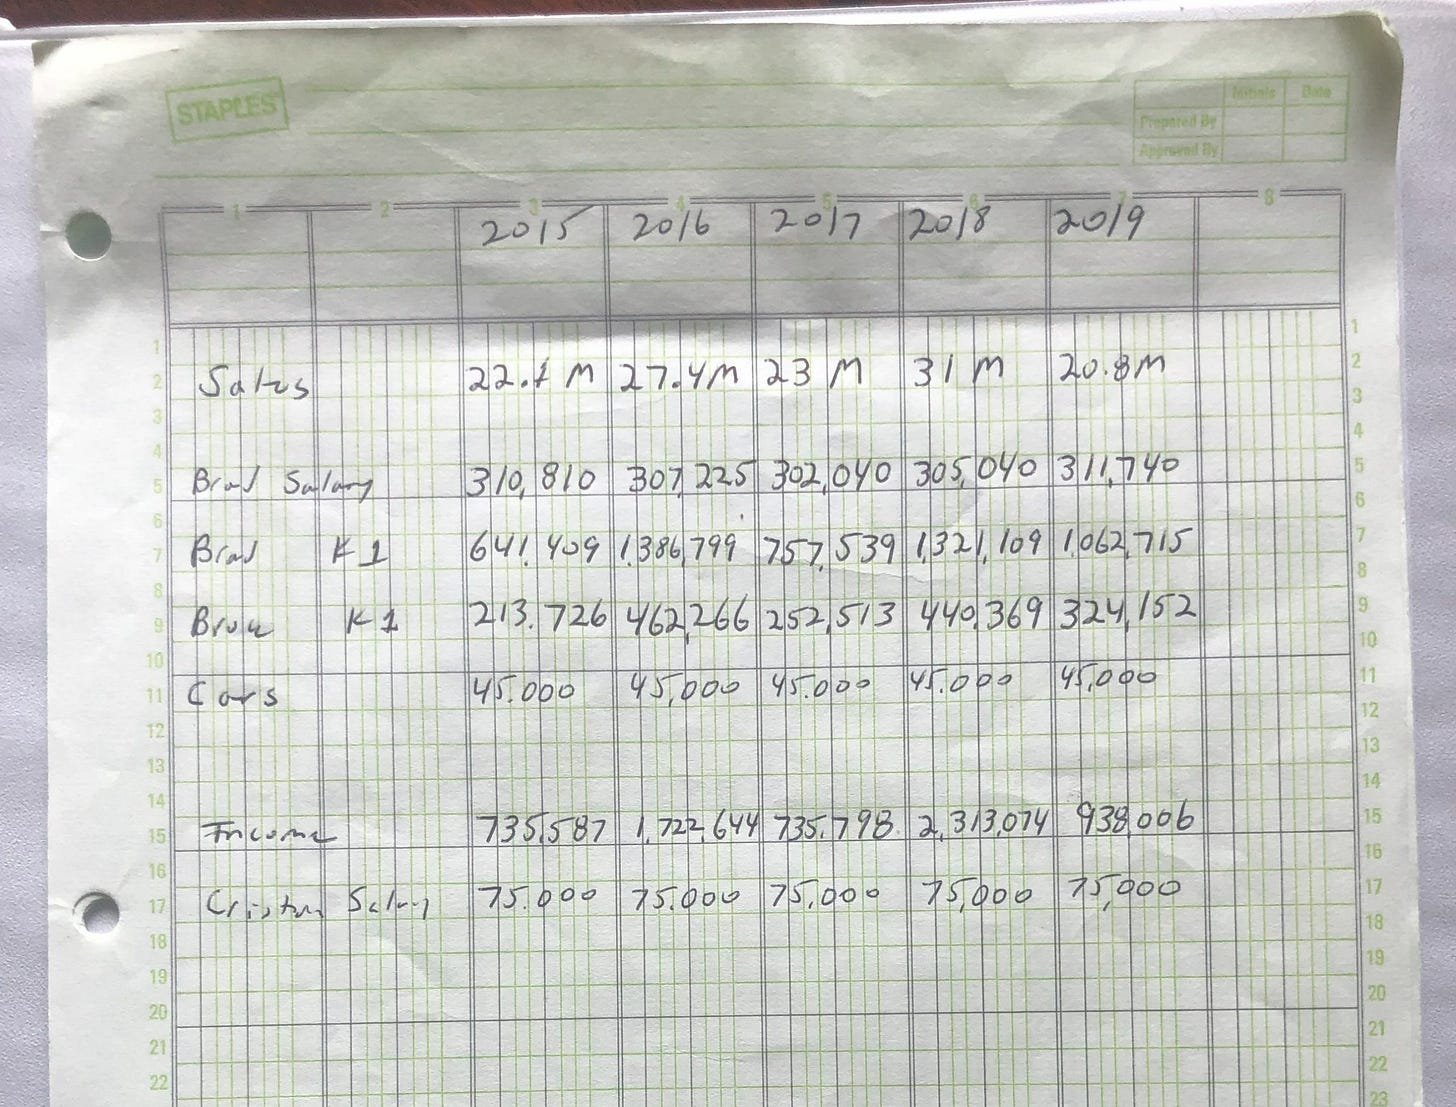 STAPLES
Initials Date
Prepared By
Approved By
1 2 3 4 5 6 7 8
2015 2016 2017 2018 2019
1 1
2 Sales 22.1 M 27.4M 23 M 31 M 20.8M 2
3 3
4 4
5 Brad Salary 310,810 307,225 302,040 305,040 311,740 5
6 6
7 Brad K1 641,409 1,386,799 757,539 1,321,109 1,062,715 7
8 8
9 K1 213.726 462,266 252,513 440,369 324,152 9
10 10
11 Cars 45.000 45,000 45.000 45.000 45,000 11
12 12
13 13
14 14
15 Income 735,587 1,722,644 735,798 2,313,074 938,006 15
16 16
17 Salary 75.000 75.000 75,000 75,000 75,000 17
18 18
19 19
20 20
21 21
22 22
23